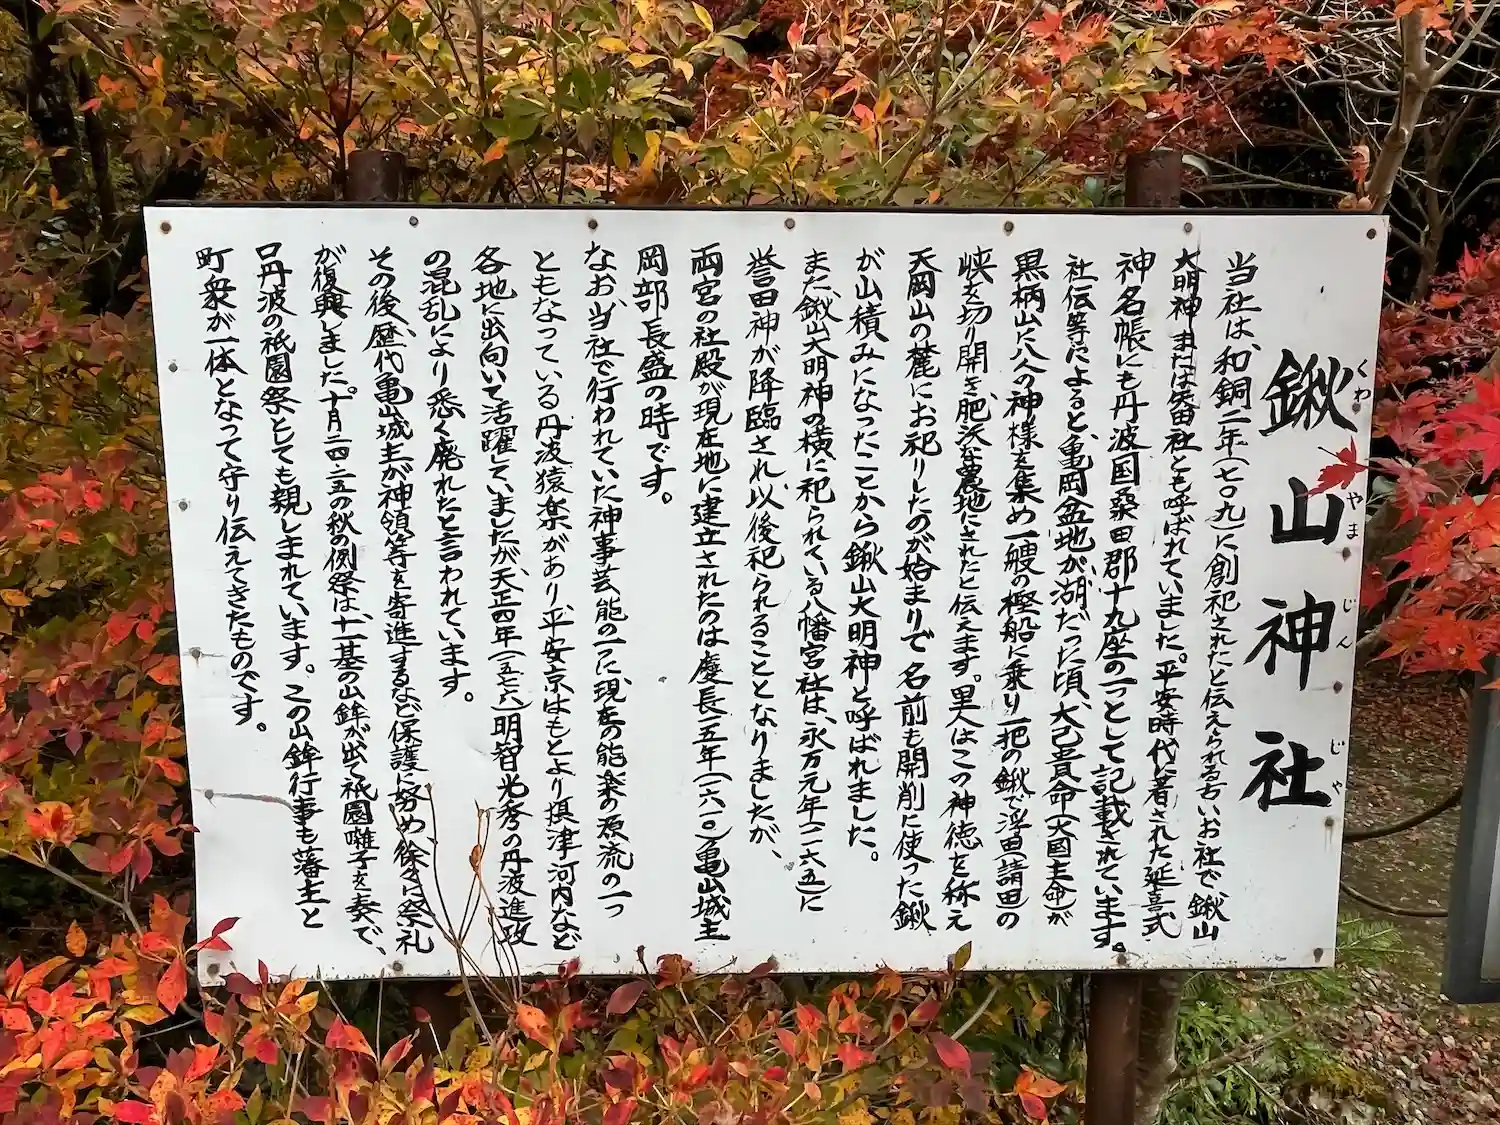 鍬山神社
くわやまじんじゃ
当社は、和銅二年(七〇九)に創祀されたと伝えられる古いお社で、鍬山
大明神または矢田社とも呼ばれていました。平安時代に著された延喜式
神名帳にも丹波国桑田郡十九座の一つとして記載されています。
社伝等によると、亀岡盆地が湖だった頃、大己貴命(大国主命)が
黒柄山に八人の神様を集め一艘の樫船に乗り一把の鍬で浮田(請田)の
峡を切り開き肥沃な農地にされたと伝えます。里人はこの神徳を称え
天岡山の麓にお祀りしたのが始まりで、名前も開削に使った鍬
が山積みになったことから鍬山大明神と呼ばれました。
また、鍬山大明神の横に祀られている八幡宮社は、永万元年(一一六五)に
誉田神が降臨され、以後祀られることとなりましたが、
両宮の社殿が現在地に建立されたのは慶長十五年(一六一〇)亀山城主
岡部長盛の時です。
なお、当社で行われていた神事芸能の一つに、現在の能楽の源流の一つ
ともなっている丹波猿楽があり、平安京はもとより摂津河内など
各地に出向いて活躍していましたが、天正四年(一五七六)明智光秀の丹波進攻
の混乱により悉く廃れたと言われています。
その後、歴代亀山城主が神領等を寄進するなど保護に努め、徐々に祭礼
が復興しました。十月二四・二五の秋の例祭は、十一基の山鉾が出て祇園囃子を奏で、
口丹波の祇園祭としても親しまれています。この山鉾行事も藩主と
町衆が一体となって守り伝えてきたものです。